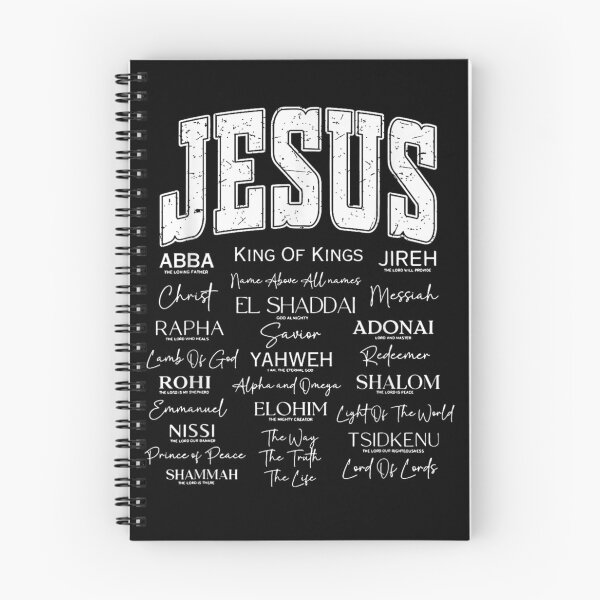 JESUS
ABBA KING OF KINGS JIREH
THE LOVING FATHER THE LORD WILL PROVIDE
Christ Name Above All names Messiah
EL SHADDAI
GOD ALMIGHTY
RAPHA Savior ADONAI
THE LORD WHO HEALS LORD AND MASTER
Lamb Of God YAHWEH Redeemer
I AM, THE ETERNAL GOD
ROHI Alpha and Omega SHALOM
THE LORD IS MY SHEPHERD THE LORD IS PEACE
Emmanuel ELOHIM Light Of The World
THE MIGHTY CREATOR
NISSI The Way TSIDKENU
THE LORD OUR BANNER THE LORD OUR RIGHTEOUSNESS
Prince of Peace The Truth Lord Of Lords
SHAMMAH The Life
THE LORD IS THERE